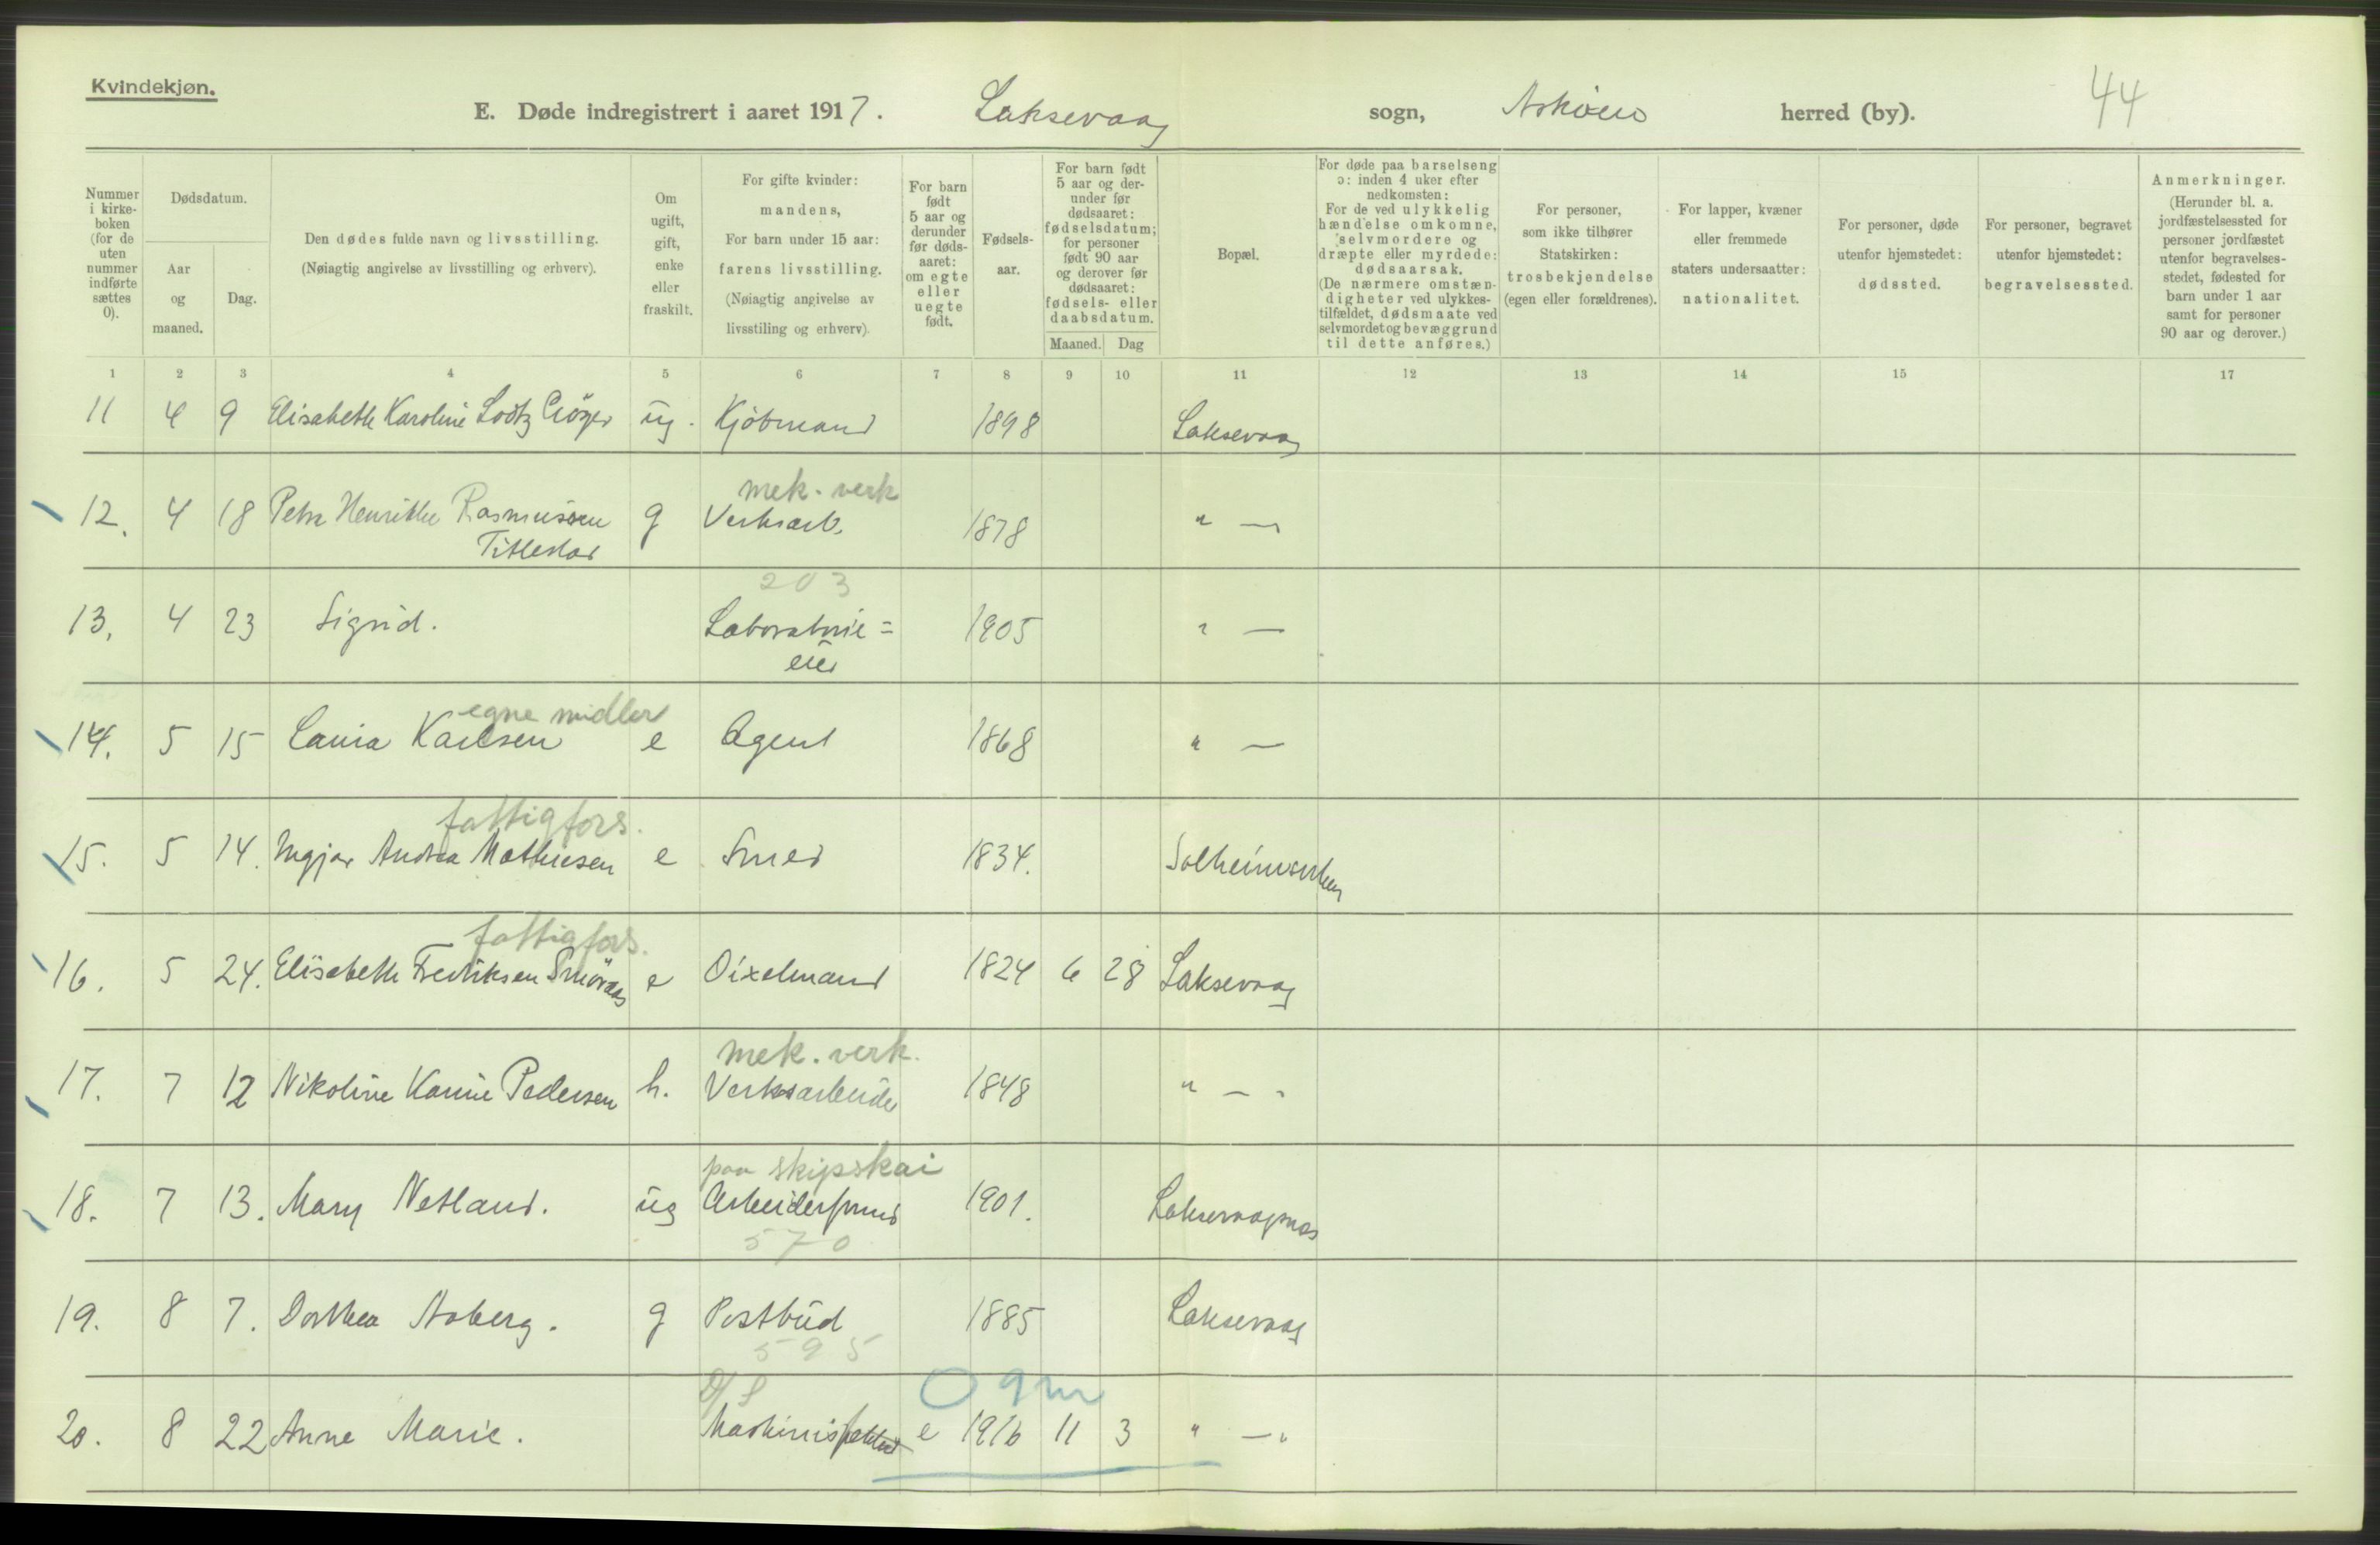 Kvindekjøn.
E. Døde indregistrert i aaret 1917. Laksevaag sogn, Askøens herred (by). 44
Nummer i kirke-boken (for de uten nummer indførte sættes 0).
Dødsdatum.
Aar og maaned.
Dag.
Den dødes fulde navn og livsstilling.
(Nøiagtig angivelse av livsstilling og erhverv).
Om ugift, gift, enke eller fraskilt.
For gifte kvinder: mandens, For barn under 15 aar: farens livsstilling. (Nøiagtig angivelse av livsstiling og erhverv).
For barn født 5 aar og derunder før døds-aaret: om egte eller uegte født.
Fødsels-aar.
For barn født 5 aar og der-under før dødsaaret: fødselsdatum; for personer født 90 aar og derover før dødsaaret: fødsels- eller daabsdatum.
Maaned. Dag
Bopæl.
For døde paa barselseng ɔ: inden 4 uker efter nedkomsten: For de ved ulykkelig hændelse omkomne, selvmordere og dræpte eller myrdede: dødsaarsak. (De nærmere omstæn-digheter ved ulykkes-tilfældet, dødsmaate ved selvmordet og bevæggrund til dette anføres.)
For personer, som ikke tilhører Statskirken: trosbekjendelse (egen eller forældrenes).
For lapper, kvæner eller fremmede staters undersaatter: nationalitet.
For personer, døde utenfor hjemstedet: dødssted.
For personer, begravet utenfor hjemstedet: begravelsessted.
Anmerkninger. (Herunder bl. a. jordfæstelsessted for personer jordfæstet utenfor begravelses-stedet, fødested for barn under 1 aar samt for personer 90 aar og derover.)
1 2 3 4 5 6 7 8 9 10 11 12 13 14 15 17
11 4 9 Elisabeth Karoline ug. Kjøbmand 1898 Laksevaag
mek. verk
12. 4 18 Petra Henrikke Rasmussen g Verksarb. 1878 " —
203
13. 4 23 Sigrid. Laboratorie= 1905 " —
eier
egne midler
14. 5 15 Laura Karlsen e Agent 1868 " —
fattigfors.
15. 5 14. Andrea Mathiesen e Smed 1834.
fattigfors.
16. 5 24. Elisabeth Fredriksen Smøraas e Dixelmand 1824 6 28 Laksevaag
mek. verk.
17. 7 12 Nikoline Karine Pedersen h. Verksarbeider 1848 " — "
paa skipskai
18. 7 13. Mary Netland. ug Arbeidsformd 1901. Laksevaagnes
570
19. 8 7. Dorthea Aaberg. g Postbud 1885 Laksevaag
595
D/S 0 9 m
20. 8 22 Anne Marie. e 1916 11 3 " — "